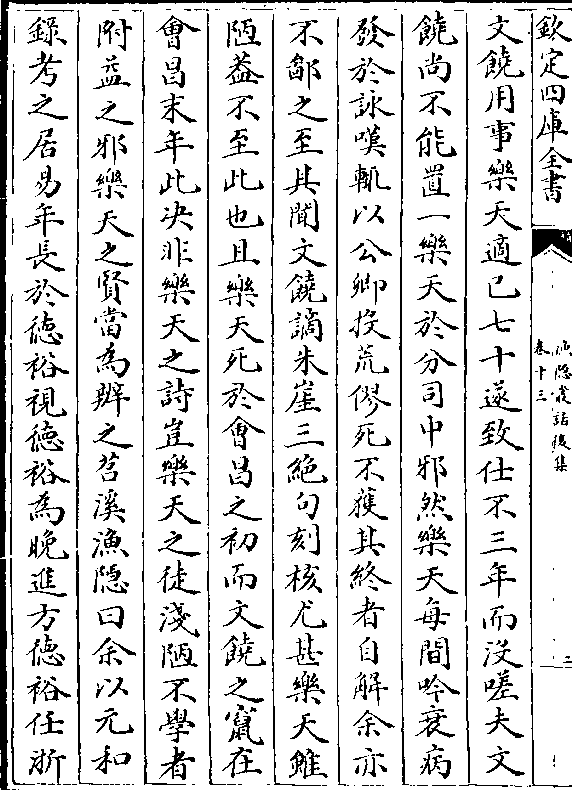 欽定四庫全書
漁隱叢話後集
卷十三
二
文饒用事樂天適已七十遂致仕不三年而沒嗟夫文
饒尚不能置一樂天於分司中邪然樂天每閒吟衰病
發於詠嘆輒以公卿投荒僇死不獲其終者自解余亦
不鄙之至其聞文饒謫朱崖三絶句刻核尤甚樂天雖
陋葢不至此也且樂天死於會昌之初而文饒之竄在
會昌末年此决非樂天之詩豈樂天之徒淺陋不學者
附益之邪樂天之賢當為辨之苕溪漁隱曰余以元和
錄考之居易年長於徳裕視徳裕為晚進方徳裕任浙